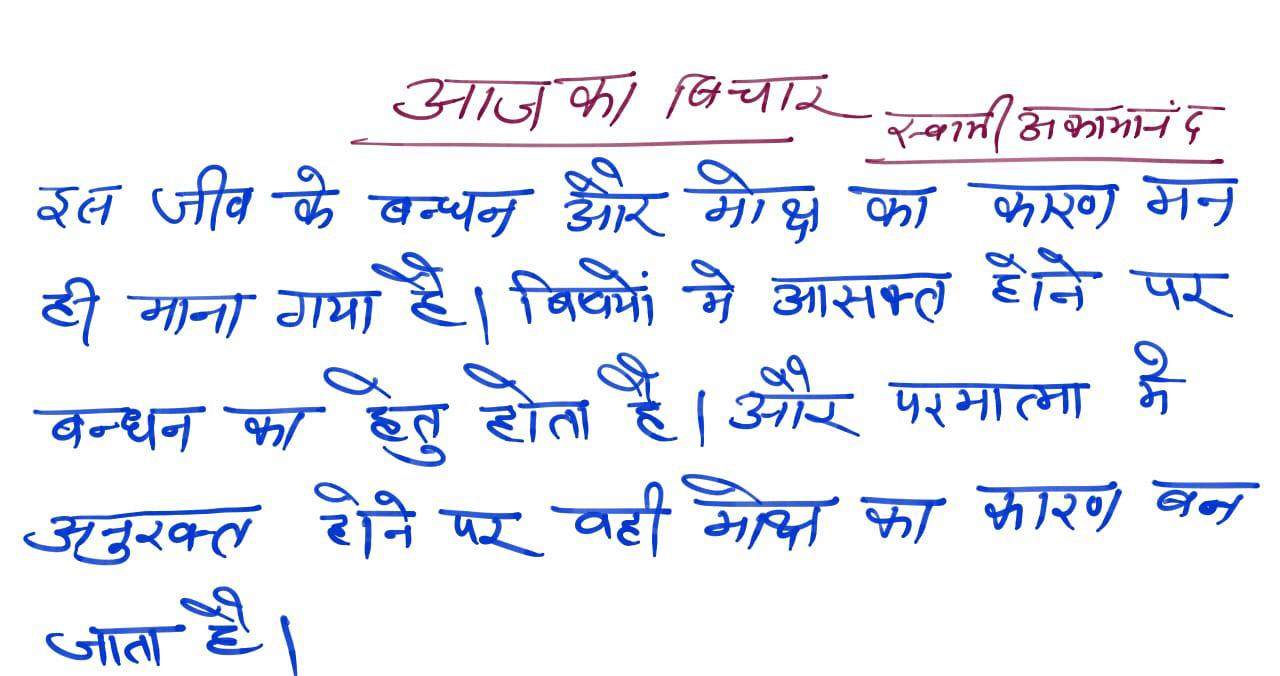 आज का विचार
स्वामी अकामानंद
इस जीव के बन्धन और मोक्ष का कारण मन
ही माना गया है। विषयों मे आसक्त होने पर
बन्धन का हेतु होता है। और परमात्मा मे
अनुरक्त होने पर वही मोक्ष का कारण बन
जाता है।